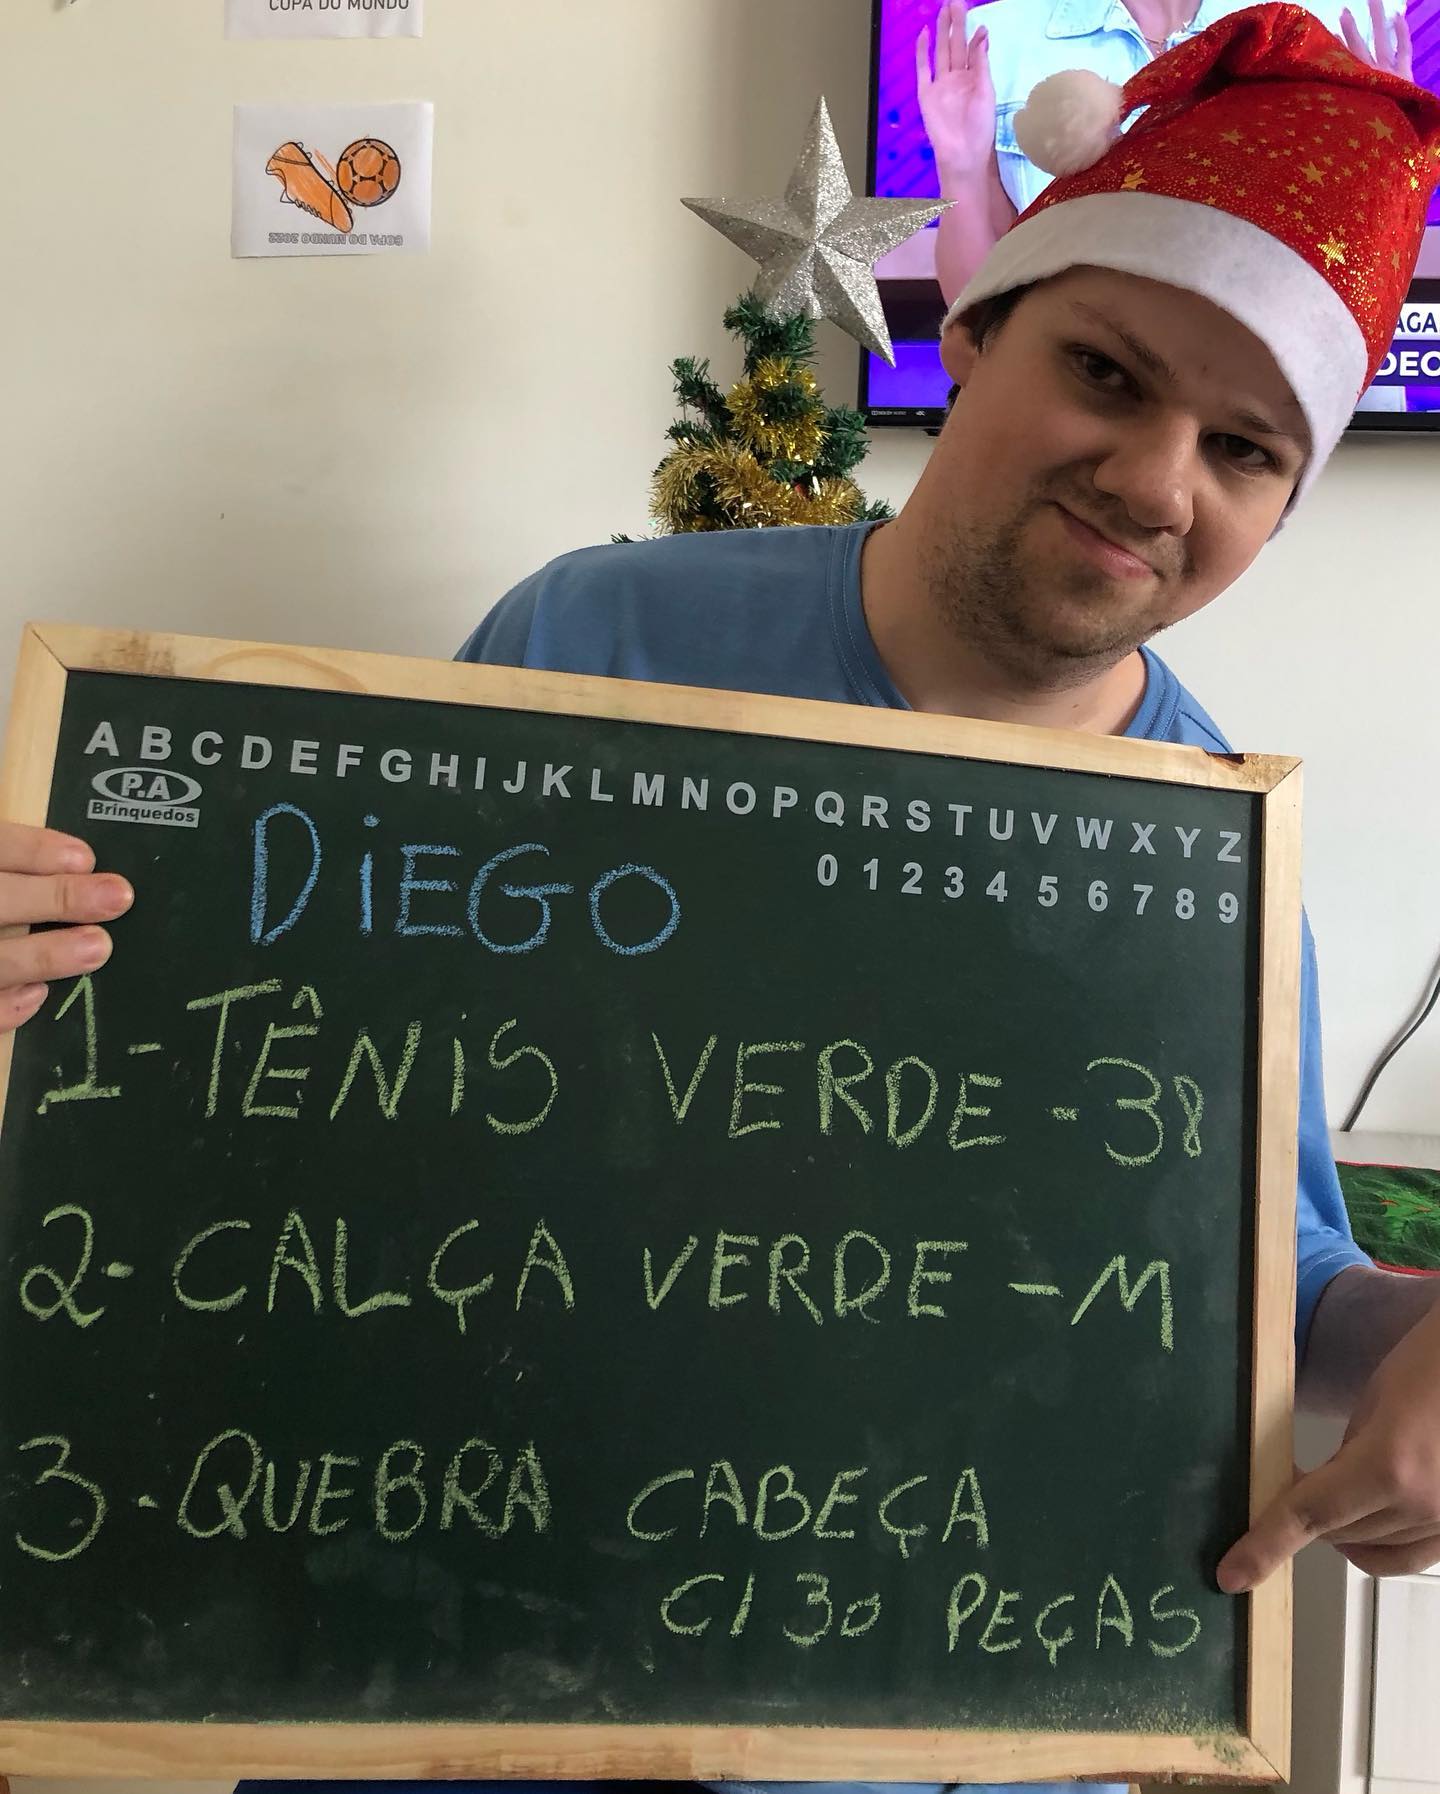 COPA DO MUNDO
COPA DO MUNDO 2022
ABCDEFGHIJKLMNOPQRSTUVWXYZ
P.A
Brinquedos
0123456789
DiEGO
1-TÊNiS VERDE-38
2-CALÇA VERDE-M
3-QUEBRA CABEÇA
C/ 30 PEÇAS